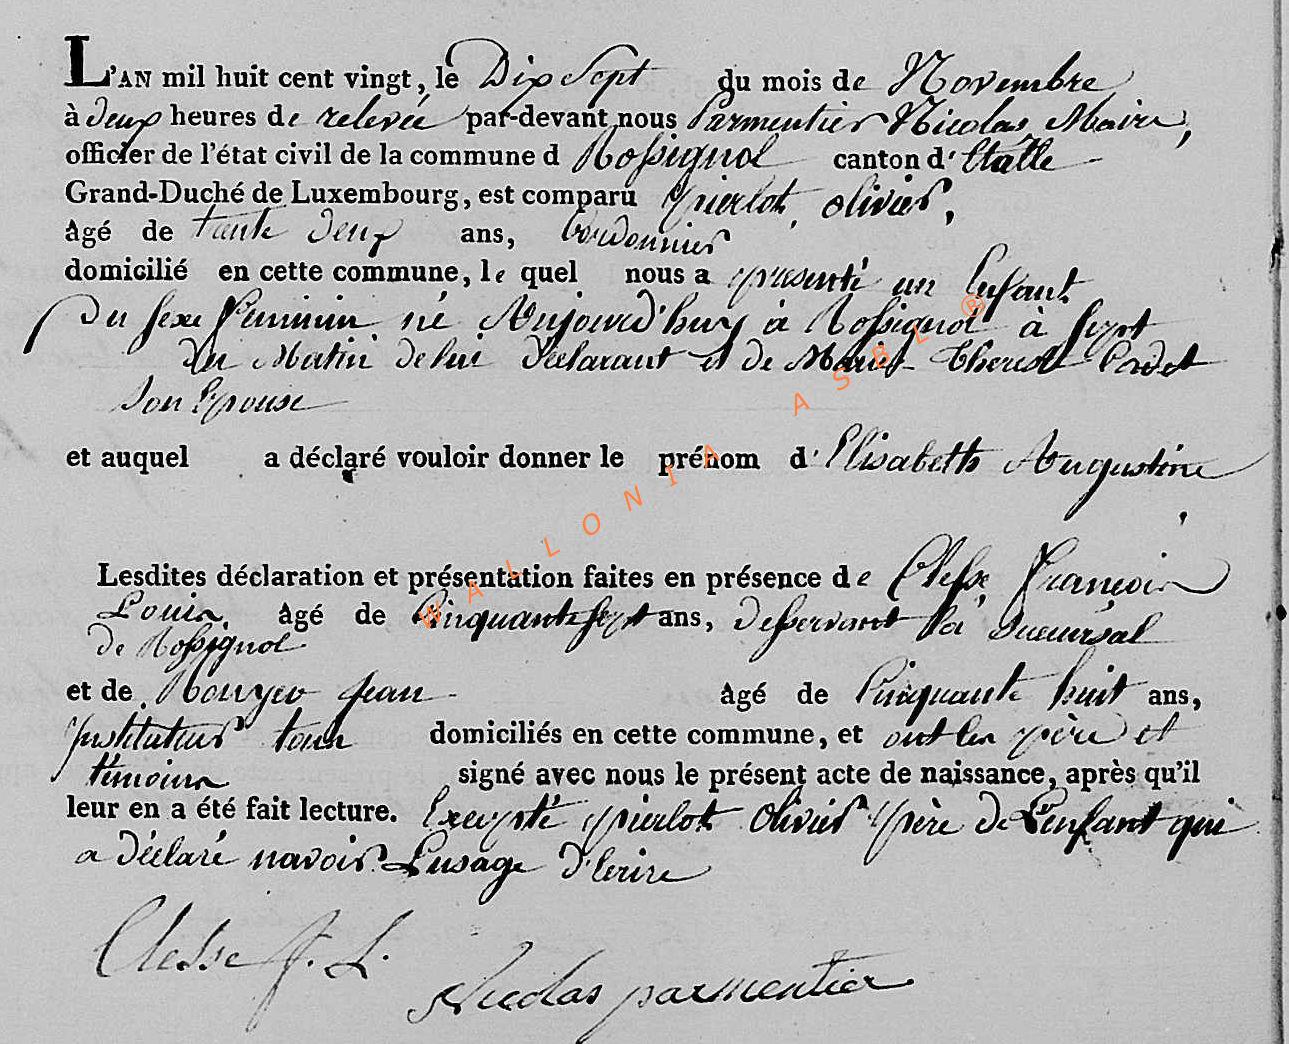 L'AN mil huit cent vingt, le Dix Sept du mois de Novembre
à deux heures de relevée par-devant nous Parmentier Nicolas Maire,
officier de l'état civil de la commune d Rossignol canton d'Etalle
Grand-Duché de Luxembourg, est comparu pierlot, olivier,
âgé de tante deux ans, Cordonnier
domicilié en cette commune, le quel nous a presenté un Enfant
Du sexe feminin né Aujourd'huy à Rossignol à sept
du Matin de lui déclarant et de Marie Therese Cordet
Son Epouse
et auquel a déclaré vouloir donner le prénom d'Elisabeth Augustine
Lesdites déclaration et présentation faites en présence de Clesse François
Louis, âgé de Cinquante sept ans, desservant la Sucursal
de Rossignol
et de Jean âgé de Cinquante huit ans,
Instituteur tous domiciliés en cette commune, et ont les père et
témoins signé avec nous le présent acte de naissance, après qu'il
leur en a été fait lecture. Excepté pierlot Olivier père de L'enfant qui
a déclaré navoir Lusage d'Ecrire
Clesse f. L.
Nicolas parmentier
WALLONIA ASBL ®